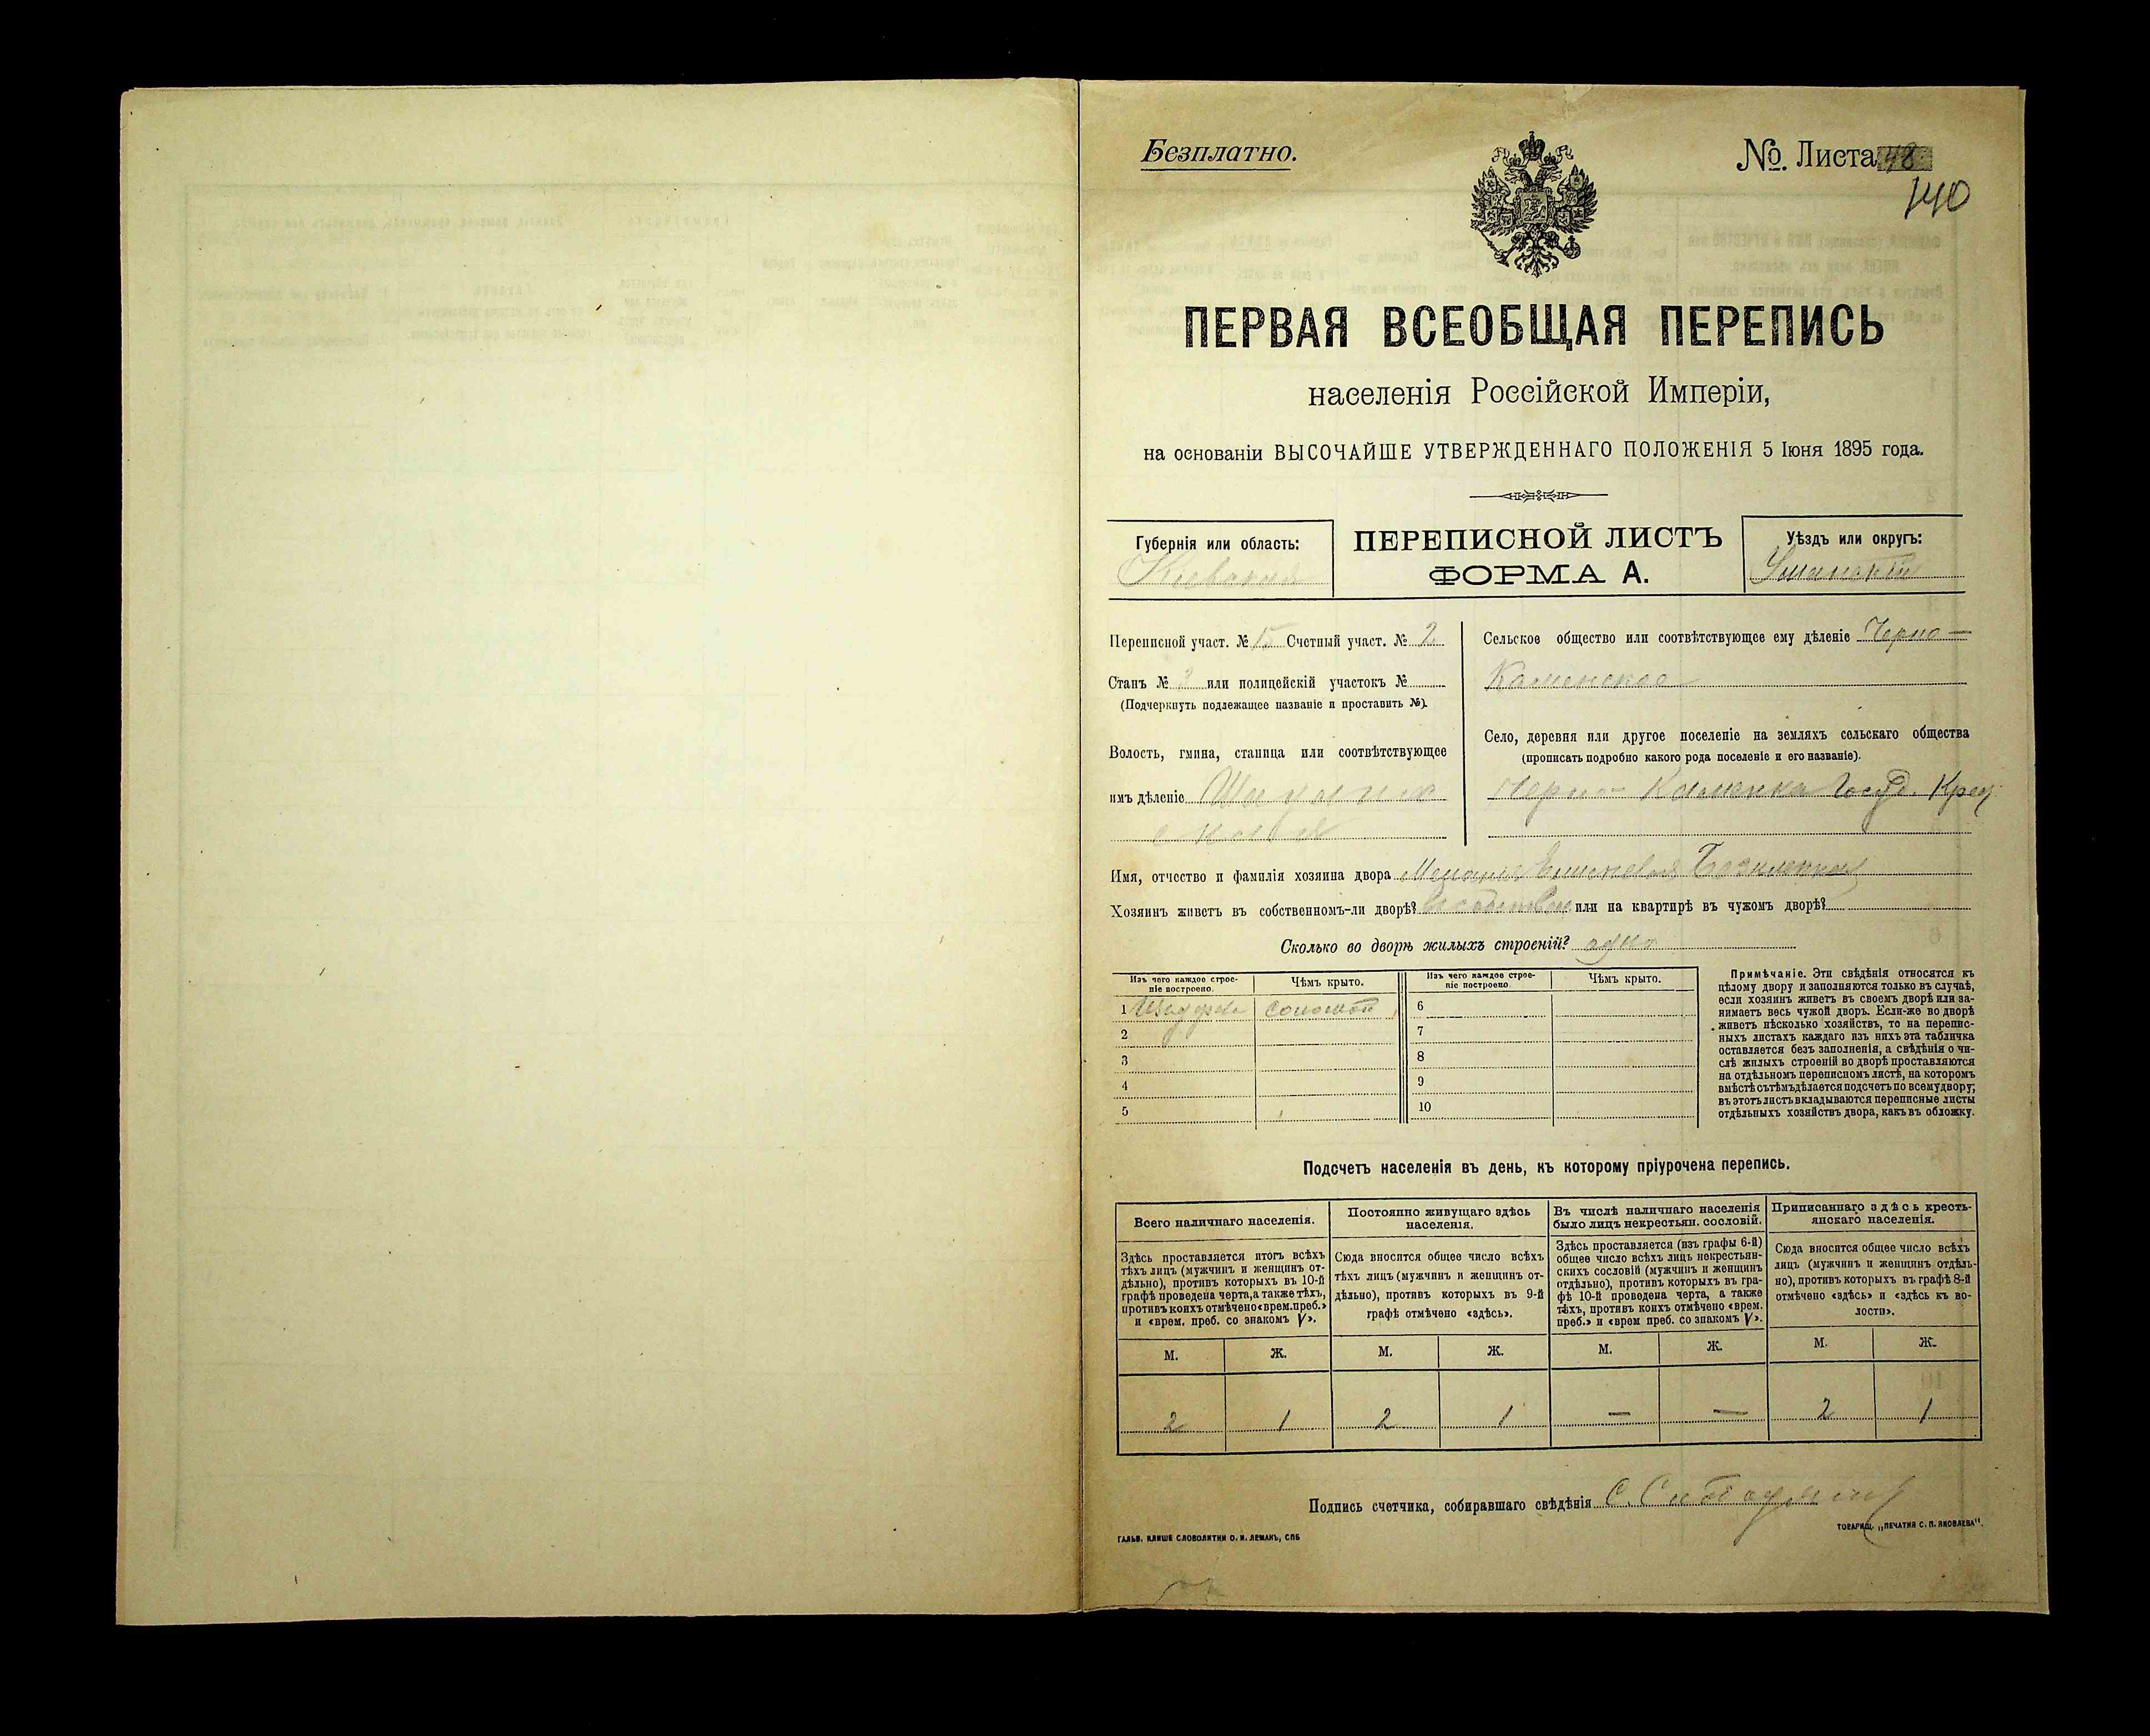 Безплатно.
№ Листа 48
140
ПЕРВАЯ ВСЕОБЩАЯ ПЕРЕПИСЬ
населенія Россійской Имперіи,
на основаніи ВЫСОЧАЙШЕ УТВЕРЖДЕННАГО ПОЛОЖЕНІЯ 5 Іюня 1895 года.
Губернія или область:
Кіевская
ПЕРЕПИСНОЙ ЛИСТЪ
ФОРМА А.
Уѣздъ или округъ:
Уманскій
Переписной участ. № 15 Счетный участ. № 2
Станъ № 3 или полицейскій участокъ №
(Подчеркнуть подлежащее названіе и проставить №).
Волость, гмина, станица или соотвѣтствующее
имъ дѣленіе
Сельское общество или соотвѣтствующее ему дѣленіе Черно-
Каменское
Село, деревня или другое поселеніе на земляхъ сельскаго общества
(прописать подробно какого рода поселеніе и его названіе).
Черно-Каменка Госуд. Крест
Имя, отчество и фамилія хозяина двора
Хозяинъ живетъ въ собственномъ-ли дворѣ? или на квартирѣ въ чужомъ дворѣ?
Сколько во дворѣ жилыхъ строеній? одно
Изъ чего каждое строе-
ніе построено.
Чѣмъ крыто.
Изъ чего каждое строе-
ніе построено.
Чѣмъ крыто.
1 соломой
2
3
4
5
6
7
8
9
10
Примѣчаніе. Эти свѣдѣнія относятся къ
цѣлому двору и заполняются только въ случаѣ,
если хозяинъ живетъ въ своемъ дворѣ или за-
нимаетъ весь чужой дворъ. Если-же во дворѣ
живетъ нѣсколько хозяйствъ, то на перепис-
ныхъ листахъ каждаго изъ нихъ эта табличка
оставляется безъ заполненія, а свѣдѣнія о чи-
слѣ жилыхъ строеній во дворѣ проставляются
на отдѣльномъ переписномъ листѣ, на которомъ
вмѣстѣ съ тѣмъ дѣлается подсчетъ по всему двору;
въ этотъ листъ вкладываются переписные листы
отдѣльныхъ хозяйствъ двора, какъ въ обложку.
Подсчетъ населенія въ день, къ которому пріурочена перепись.
Всего наличнаго населенія.
Здѣсь проставляется итогъ всѣхъ
тѣхъ лицъ (мужчинъ и женщинъ от-
дѣльно), противъ которыхъ въ 10-й
графѣ проведена черта, а также тѣхъ,
противъ коихъ отмѣчено «врем. преб.»
и «врем. преб. со знакомъ V».
Постоянно живущаго здѣсь
населенія.
Сюда вносится общее число всѣхъ
тѣхъ лицъ (мужчинъ и женщинъ от-
дѣльно), противъ которыхъ въ 9-й
графѣ отмѣчено «здѣсь».
Въ числѣ наличнаго населенія
было лицъ некрестьян. сословій.
Здѣсь проставляется (изъ графы 6-й)
общее число всѣхъ лицъ некрестьян-
скихъ сословій (мужчинъ и женщинъ
отдѣльно), противъ которыхъ въ гра-
фѣ 10-й проведена черта, а также
тѣхъ, противъ коихъ отмѣчено «врем.
преб.» и «врем преб. со знакомъ V».
Приписаннаго здѣсь кресть-
янскаго населенія.
Сюда вносится общее число всѣхъ
лицъ (мужчинъ и женщинъ отдѣль-
но), противъ которыхъ въ графѣ 8-й
отмѣчено «здѣсь» и «здѣсь къ во-
лости».
М. Ж. М. Ж. М. Ж. М. Ж.
2 1 2 1 — — 2 1
Подпись счетчика, собиравшаго свѣдѣнія
ГАЛЬВ. КЛИШЕ СЛОВОЛИТНИ О. И. ЛЕМАНЪ, СПБ
ТОВАРИЩ. „ПЕЧАТНЯ С. П. ЯКОВЛЕВА".